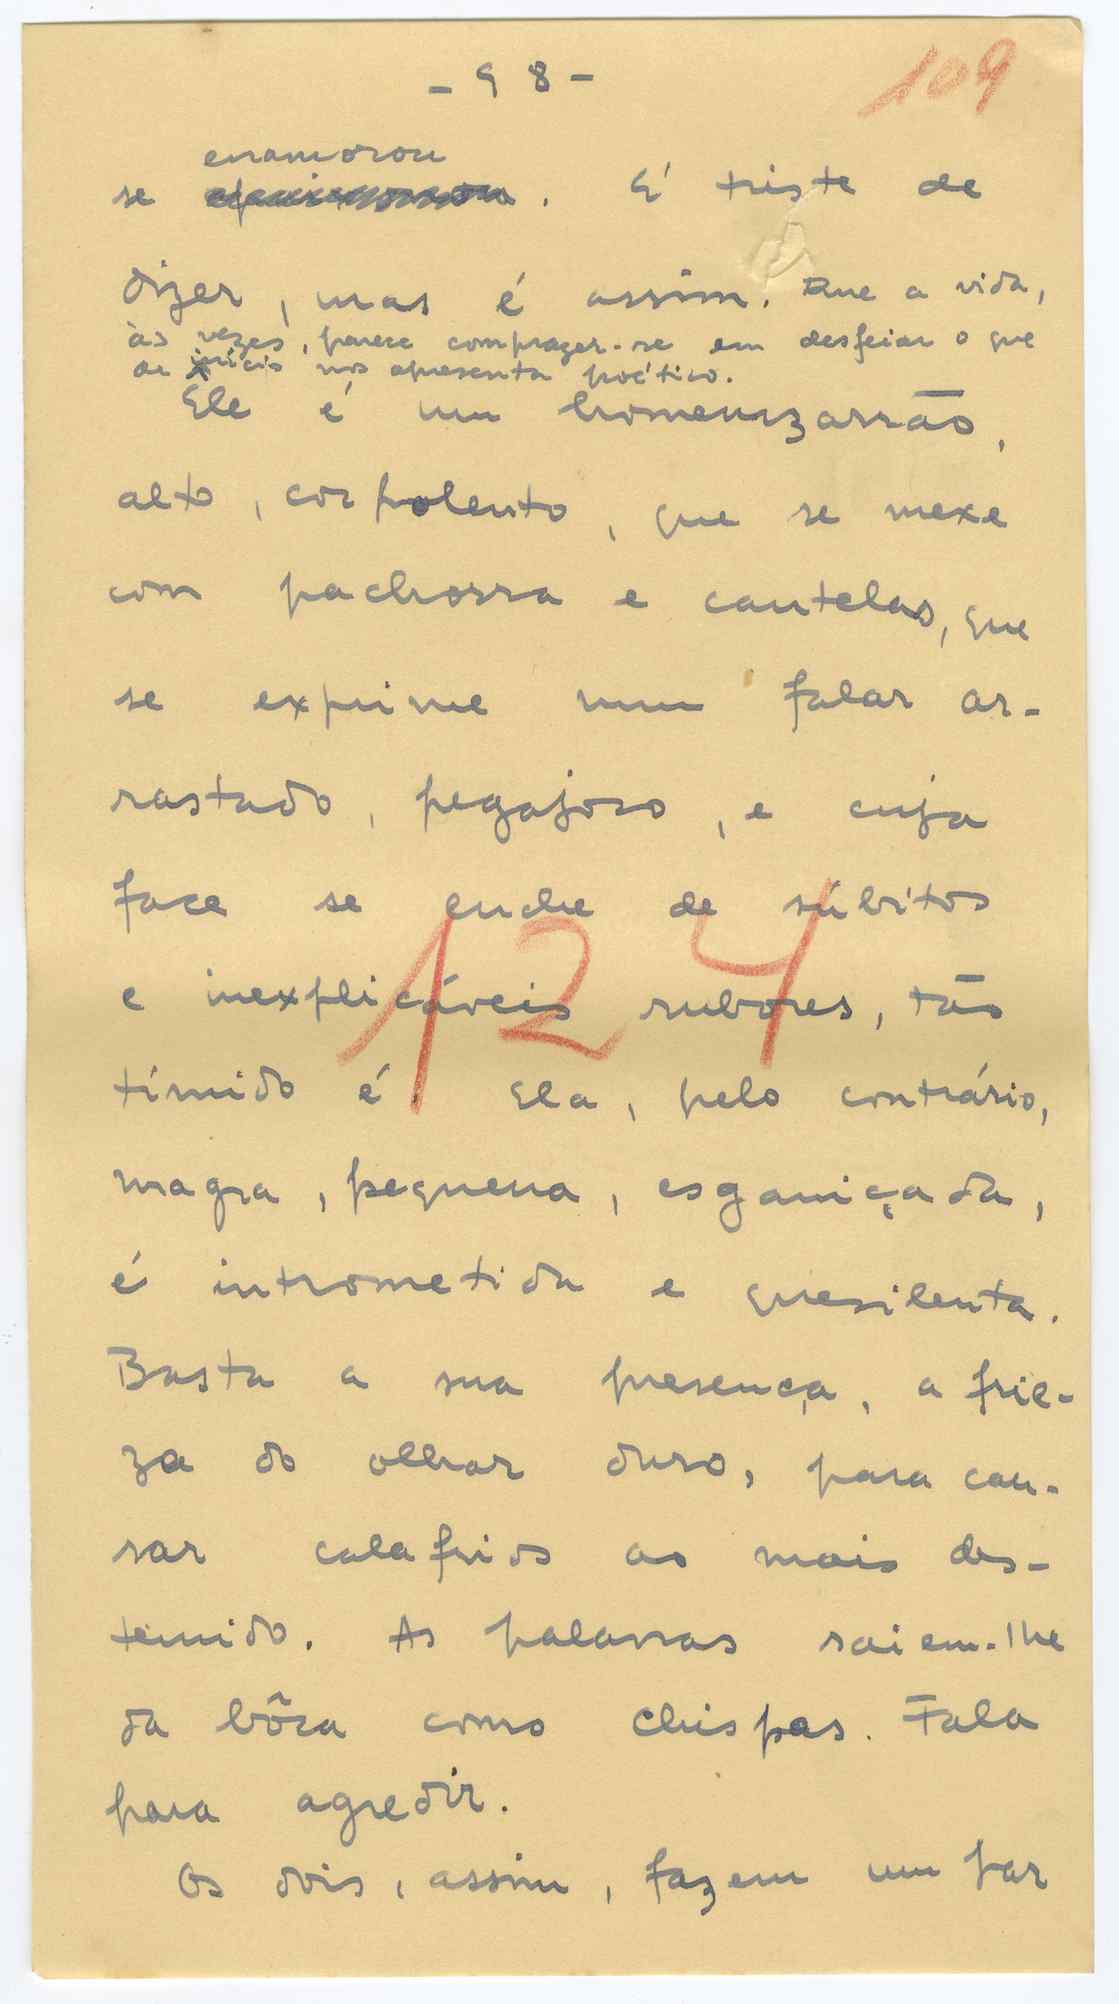 - 98 -
109
enamorou
se . É triste de
dizer, mas é assim. Que a vida,
às vezes, parece comprazer-se em desfeiar o que
de início nos apresenta poético.
Ele é um homenzarrão,
alto, corpolento, que se mexe
com pachorra e cautelas, que
se exprime num falar ar-
rastado, pegajoso, e cuja
face se enche de súbitos
e inexplicáveis rubores, tão
124
tímido é. Ela, pelo contrário,
magra, pequena, esganiçada,
é intrometida e quesilenta.
Basta a sua presença, a frie-
za do olhar duro, para cau-
sar calafrios ao mais des-
temido. As palavras saiem-lhe
da bôca como chispas. Fala
para agredir.
Os dois, assim, fazem um par